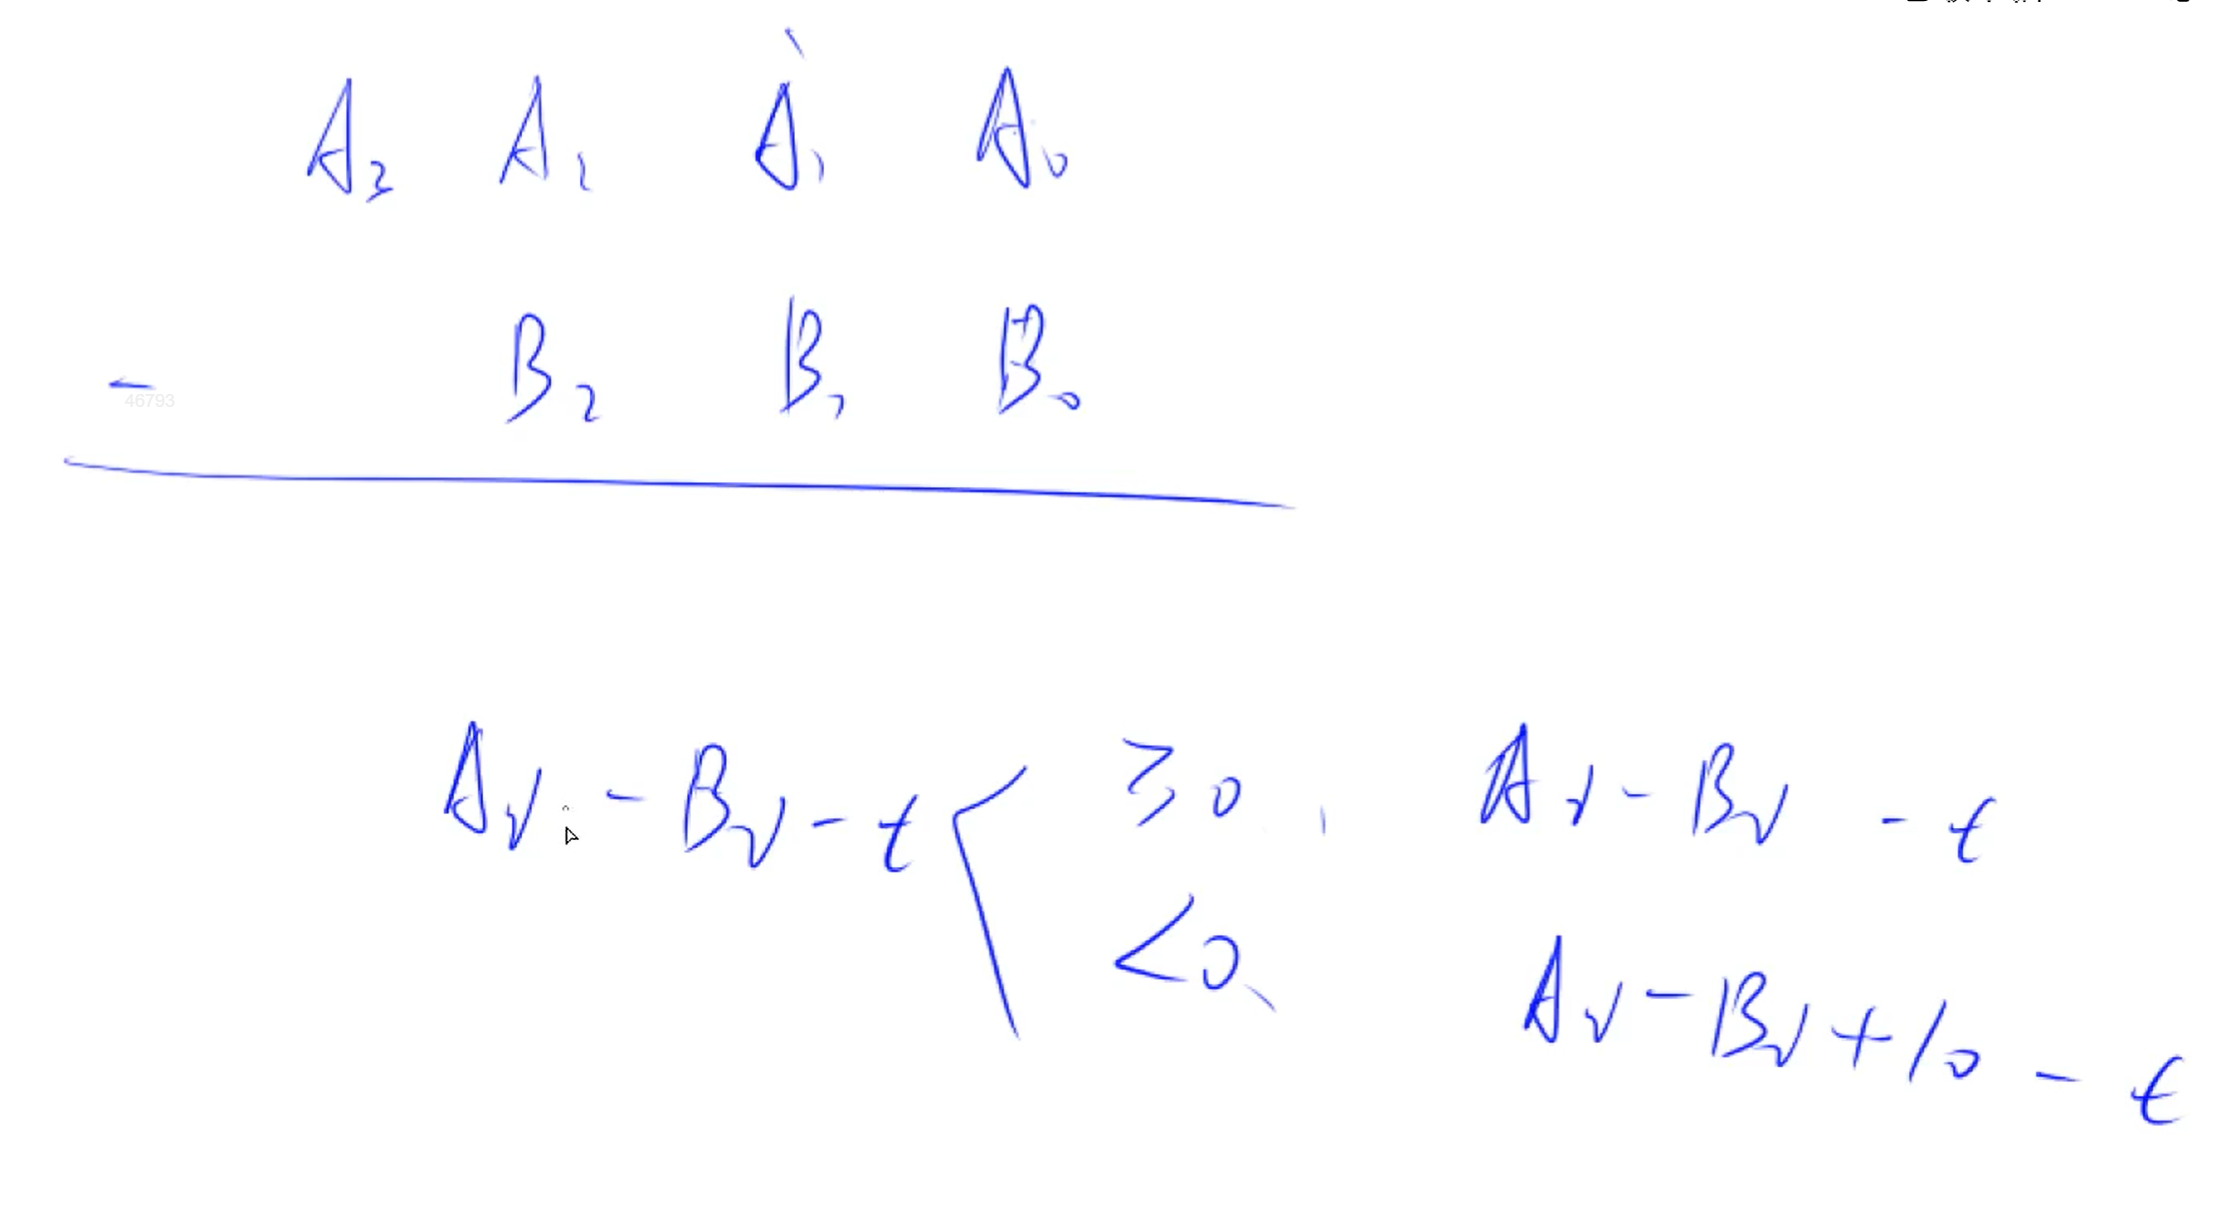 A₃ A₂ A₁ A₀
- B₂ B₁ B₀
46793
Aᵢ - Bᵢ - t ≥0, Aᵢ - Bᵢ - t
<0, Aᵢ - Bᵢ + 10 - t